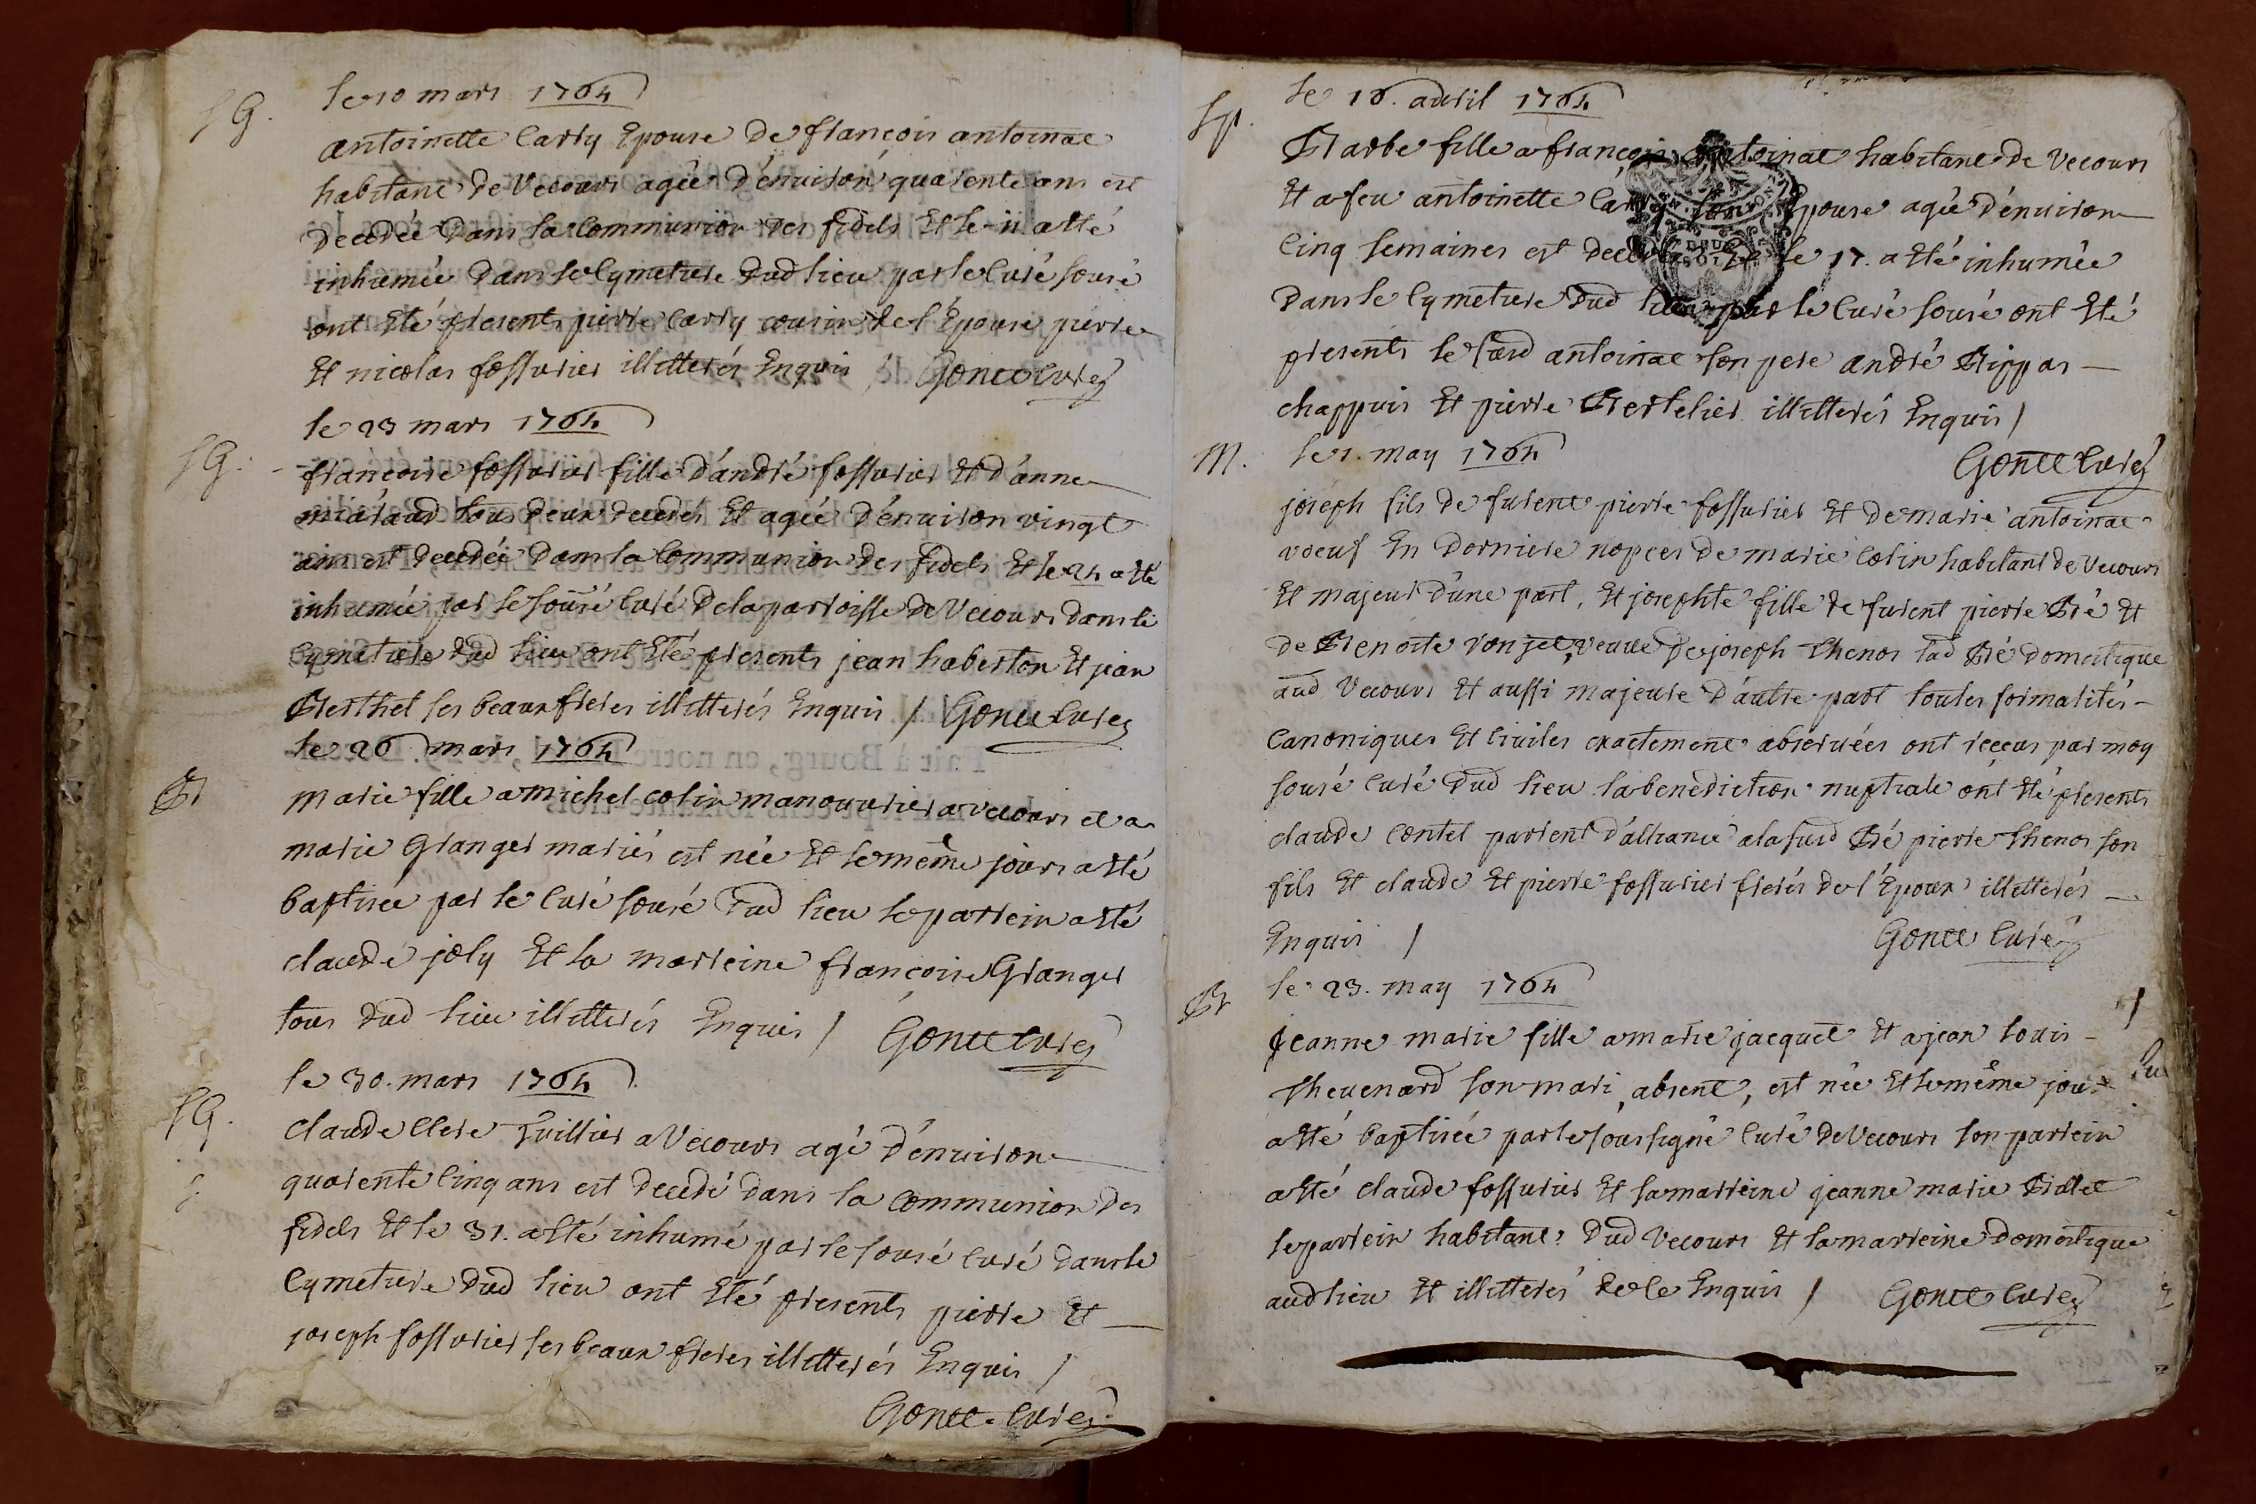 SG.
le 10 mars 1764
antoinette Carry Epouse de françois antoinat
habitant de Vecours agée d'enuiron quarente ans est
decedée dans la Communion des fidels Et le 11 a été
inhumée dans le Cymetiere dud lieu par le Curé sousé
ont Eté presents pierre Carry cousin de l'Epouse pierre
Et nicolas fossurier illitterés Enquis / Gonet Curé
le 23 mars 1764
SG.
françoise fossurier fille d'andré fossurier Et d'anne
tous deux decedés Et agée d'enuiron vingt
ans est decedée dans la Communion des fidels Et le 24 a été
inhumée par le sousé Curé de la parroisse de Vecours dans le
Cymetiere dud lieu ont Eté presents jean haberton Et jean
Berthet ses beaux freres illitterés Enquis / Gonet Curé
le 26. mars 1764
B
marie fille a michel colin manouurier a vecours et a
marie Granger mariés est née Et le même jours a été
baptisée par le Curé sousé dud lieu le parrein a été
claude joly Et la marreine françoise Granger
tous dud lieu illitterés Enquis / Gonet Curé
le 30. mars 1764
SG.
Claude Clere a Vecours agé d'enuiron
quarente Cinq ans est decedé dans la communion des
fidels Et le 31. a été inhumé par le sousé Curé dans le
Cymetiere dud lieu ont Eté presents pierre Et
joseph fossurier ses beaux freres illitterés Enquis /
Gonet Curé
le 16. auril 1764
Sp.
Barbe fille a françois antoinat habitant de Vecours
Et a feu antoinette Carry son Epouse agée d'enuiron
Cinq semaines est decedée Et le 17. a été inhumée
dans le Cymetiere dud lieu par le Curé sousé ont Eté
presents le susd antoinat son pere andré
chappuis Et pierre Bertelier illitterés Enquis /
Gonet Curé
M.
le 1. may 1764
joseph fils de furent pierre fossurier Et de marie antoinat
voeuf En dorniere nopces de marie Colin habitant de Vecours
Et majeur d'une part, Et josephte fille de furent pierre Bré Et
de Benoite Vonjet, veuve de joseph Thenos lad Bré domestique
aud Vecours Et aussi majeure d'autre part toutes formalités
Canoniques Et Ciuiles exactement obseruées ont receus par moy
sousé Curé dud lieu la benediction nuptiale ont Eté presents
claude Contet parient d'alliance a la susd Bré pierre Thenos son
fils Et claude Et pierre fossurier freres de l'Epoux illitterés
Enquis / Gonet Curé
le 23. may 1764
B
jeanne marie fille a marie jacquet Et a jean Louis
Theuenard son mari, absent, est née Et le même jour
a été baptisée par le soussigné Curé de Vecours son parrein
a été claude fossurier Et sa marreine jeanne marie Brollet
le parrein habitant dud Vecours Et la marreine domestique
aud lieu Et illitterés de ce Enquis / Gonet Curé